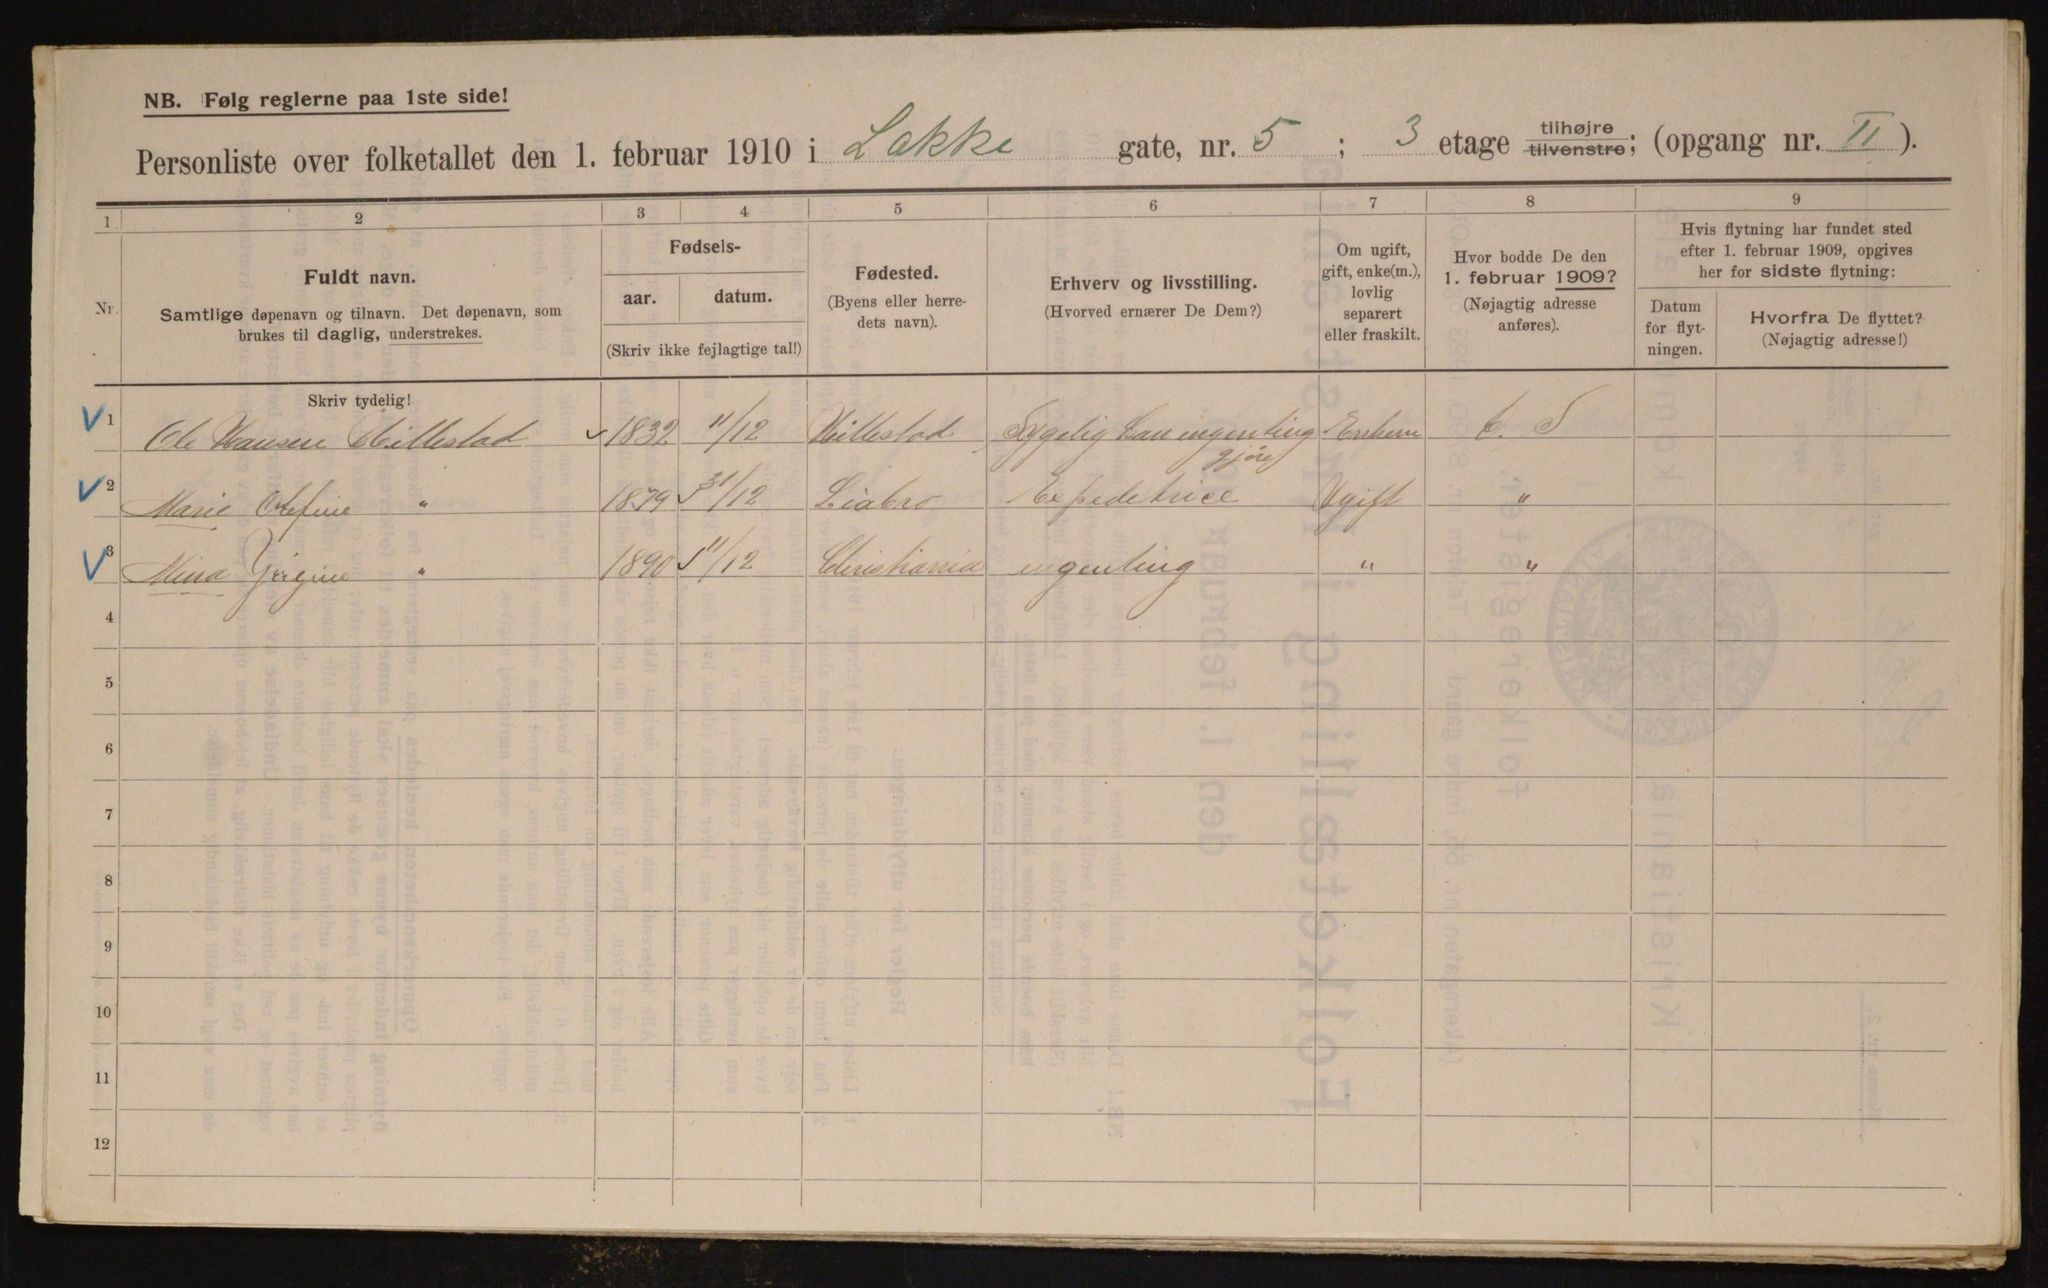 NB. Følg reglerne paa 1ste side!
Personliste over folketallet den 1. februar 1910 i Lakke gate, nr. 5 ; 3 etage tilhøjre tilvenstre; (opgang nr. II ).
1 2 3 4 5 6 7 8 9
Nr.
Fuldt navn.
Samtlige døpenavn og tilnavn. Det døpenavn, som
brukes til daglig, understrekes.
Fødsels-
aar. datum.
(Skriv ikke fejlagtige tal!)
Fødested.
(Byens eller herre-
dets navn).
Erhverv og livsstilling.
(Hvorved ernærer De Dem?)
Om ugift,
gift, enke(m.),
lovlig
separert
eller fraskilt.
Hvor bodde De den
1. februar 1909?
(Nøjagtig adresse
anføres).
Hvis flytning har fundet sted
efter 1. februar 1909, opgives
her for sidste flytning:
Datum
for flyt-
ningen.
Hvorfra De flyttet?
(Nøjagtig adresse!)
Skriv tydelig!
1 Ole Hansen Hillestad 1832 11/12 Hillestad Sygelig kan ingenting gjøre Enkem
2 Marie Olefine " 1879 31/12 Liabro Expeditrice Ugift "
3 Mina Jørgine " 1890 11/12 Christiania ingenting " "
4
5
6
7
8
9
10
11
12